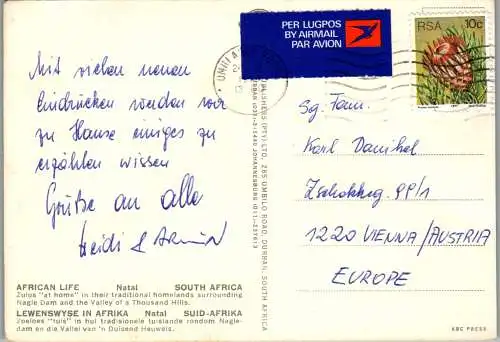 PER LUGPOS
BY AIRMAIL
PAR AVION
RSA 10c
Mit vielen neuen
Eindrücken werden wir
zu Hause einiges zu
erzählen wissen
Grüße an alle
Heidi & Armin
Sg. Fam.
Karl Danihel
Zschokkeg. 99/1
1220 VIENNA/AUSTRIA
EUROPE
AFRICAN LIFE Natal SOUTH AFRICA
Zulus "at home" in their traditional homelands surrounding
Nagle Dam and the Valley of a Thousand Hills.
LEWENSWYSE IN AFRIKA Natal SUID-AFRIKA
Zoeloes "tuis" in hul tradisionele tuislande rondom Nagle-
dam en die Vallei van 'n Duisend Heuwels.
(PTY) LTD, 285 UMBILO ROAD, DURBAN, SOUTH AFRICA
JOHANNESBURG
KBC PRESS